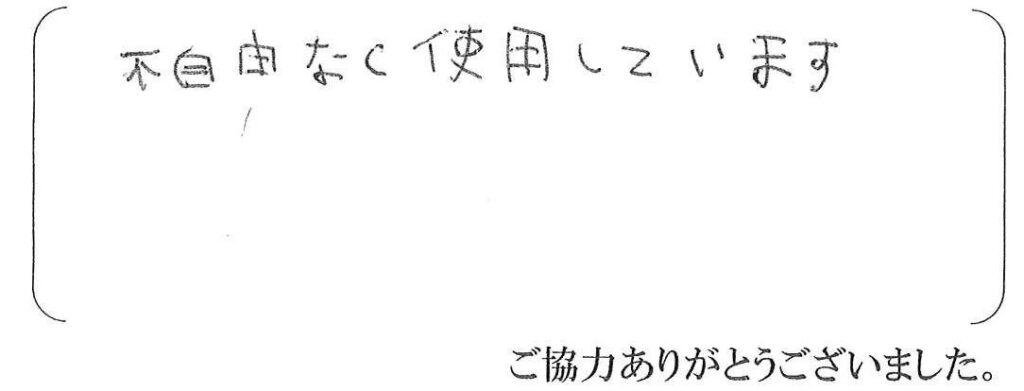 不自由なく使用しています
ご協力ありがとうございました。